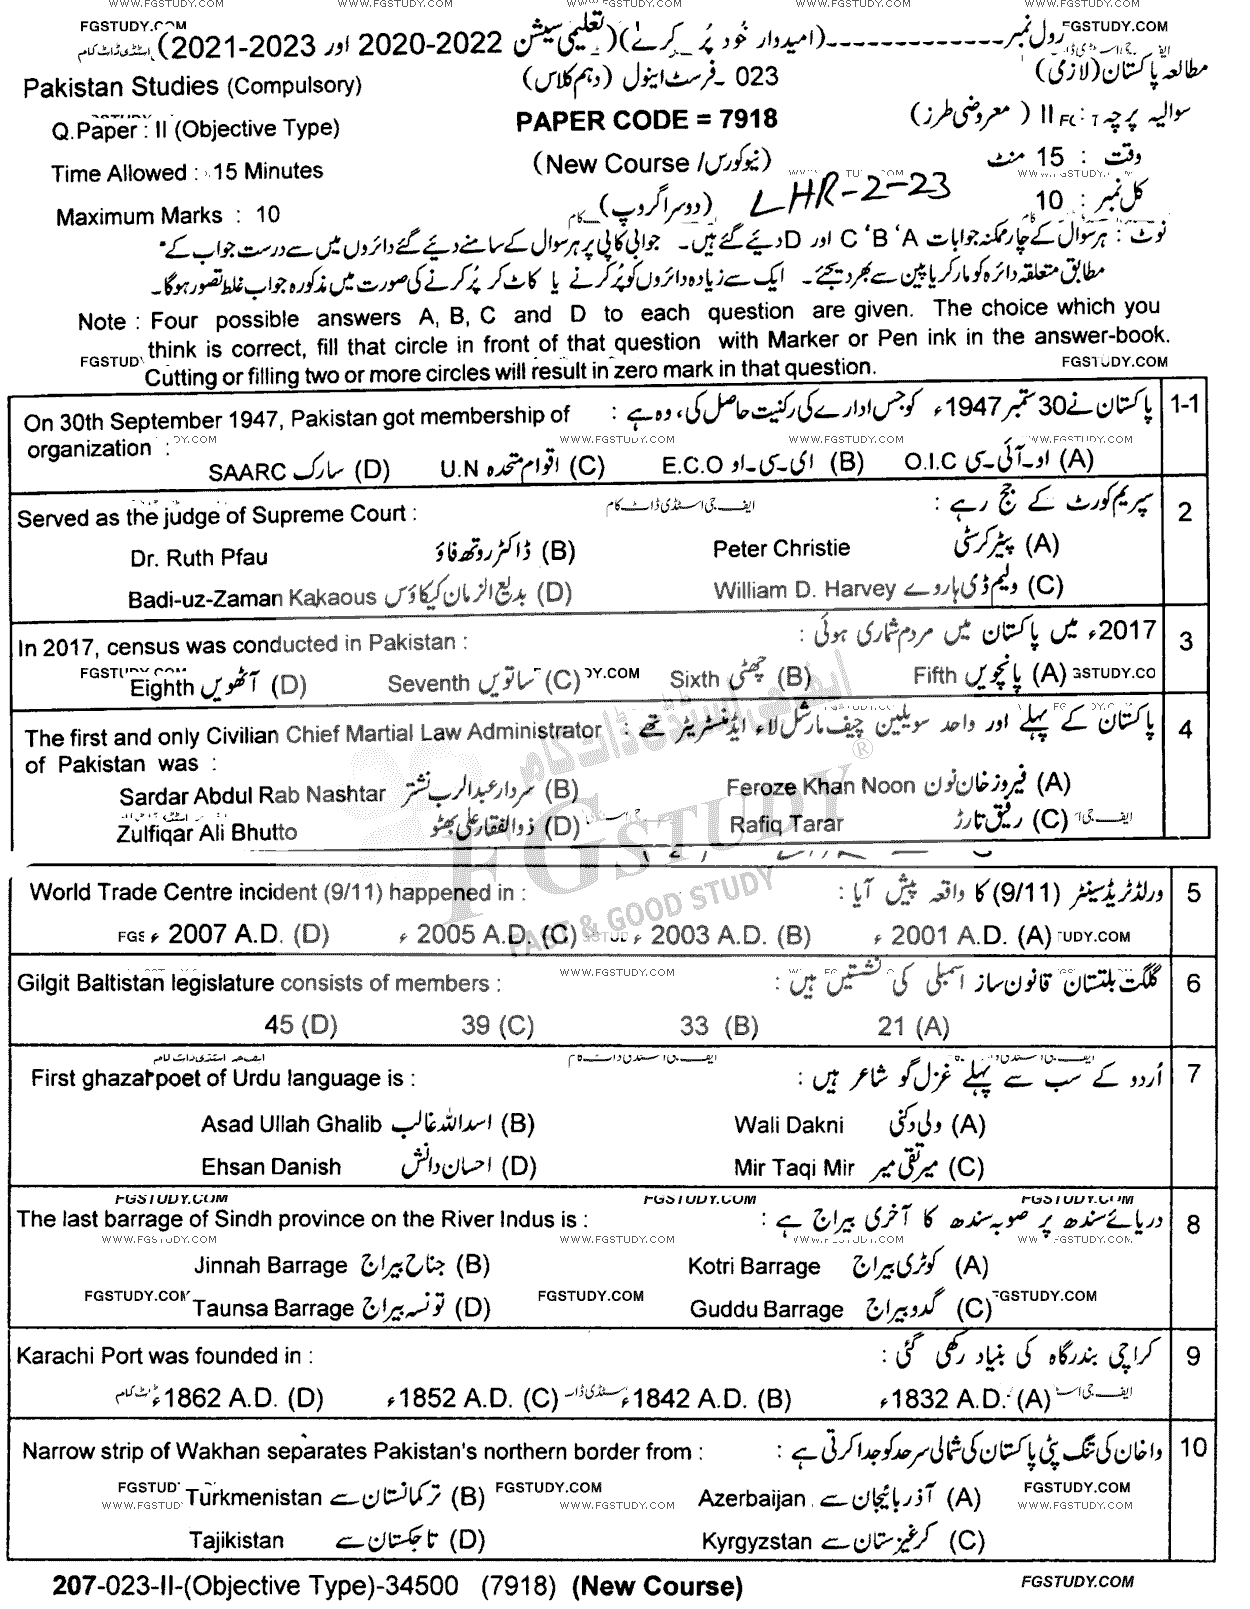 رول نمبر ------------- (امیدوار خود پُر کرے) (تعلیمی سیشن 2022-2020 اور 2023-2021)
Pakistan Studies (Compulsory) 023 ۔ فرسٹ اینول (دہم کلاس) مطالعہ پاکستان (لازمی)
Q.Paper : II (Objective Type) PAPER CODE = 7918 سوالیہ پرچہ : II (معروضی طرز)
Time Allowed : 15 Minutes (New Course / نیو کورس) وقت : 15 منٹ
Maximum Marks : 10 (دوسرا گروپ) LHR-2-23 کل نمبر : 10
نوٹ : ہر سوال کے چار ممکنہ جوابات A، B، C اور D دیئے گئے ہیں۔ جوابی کاپی پر ہر سوال کے سامنے دیئے گئے دائروں میں سے درست جواب کے
مطابق متعلقہ دائرہ کو مارکر یا پین سے بھر دیجئے۔ ایک سے زیادہ دائروں کو پُر کرنے یا کاٹ کر پُر کرنے کی صورت میں مذکورہ جواب غلط تصور ہوگا۔
Note : Four possible answers A, B, C and D to each question are given. The choice which you
think is correct, fill that circle in front of that question with Marker or Pen ink in the answer-book.
Cutting or filling two or more circles will result in zero mark in that question.
1-1 پاکستان نے 30 ستمبر 1947ء کو جس ادارے کی رکنیت حاصل کی، وہ ہے :
On 30th September 1947, Pakistan got membership of
organization :
(A) او۔آئی۔سی O.I.C (B) ای۔سی۔او E.C.O (C) اقوام متحدہ U.N (D) سارک SAARC
2 سپریم کورٹ کے جج رہے :
Served as the judge of Supreme Court :
(A) پیٹر کرسٹی Peter Christie (B) ڈاکٹر روتھ فاؤ Dr. Ruth Pfau
(C) ولیم ڈی ہاروے William D. Harvey (D) بدیع الزمان کیکاؤس Badi-uz-Zaman Kakaous
3 2017ء میں پاکستان میں مردم شماری ہوئی :
In 2017, census was conducted in Pakistan :
(A) پانچویں Fifth (B) چھٹی Sixth (C) ساتویں Seventh (D) آٹھویں Eighth
4 پاکستان کے پہلے اور واحد سویلین چیف مارشل لاء ایڈمنسٹریٹر تھے :
The first and only Civilian Chief Martial Law Administrator
of Pakistan was :
(A) فیروز خان نون Feroze Khan Noon (B) سردار عبدالرب نشتر Sardar Abdul Rab Nashtar
(C) رفیق تارڑ Rafiq Tarar (D) ذوالفقار علی بھٹو Zulfiqar Ali Bhutto
5 ورلڈ ٹریڈ سنٹر (9/11) کا واقعہ پیش آیا :
World Trade Centre incident (9/11) happened in :
(A) 2001 A.D. ء (B) 2003 A.D. ء (C) 2005 A.D. ء (D) 2007 A.D. ء
6 گلگت بلتستان قانون ساز اسمبلی کی نشستیں ہیں :
Gilgit Baltistan legislature consists of members :
(A) 21 (B) 33 (C) 39 (D) 45
7 اُردو کے سب سے پہلے غزل گو شاعر ہیں :
First ghazal poet of Urdu language is :
(A) ولی دکنی Wali Dakni (B) اسداللہ غالب Asad Ullah Ghalib
(C) میر تقی میر Mir Taqi Mir (D) احسان دانش Ehsan Danish
8 دریائے سندھ پر صوبہ سندھ کا آخری بیراج ہے :
The last barrage of Sindh province on the River Indus is :
(A) کوٹری بیراج Kotri Barrage (B) جناح بیراج Jinnah Barrage
(C) گدو بیراج Guddu Barrage (D) تونسہ بیراج Taunsa Barrage
9 کراچی بندرگاہ کی بنیاد رکھی گئی :
Karachi Port was founded in :
(A) 1832 A.D. ء (B) 1842 A.D. ء (C) 1852 A.D. ء (D) 1862 A.D. ء
10 واخان کی تنگ پٹی پاکستان کی شمالی سرحد کو جدا کرتی ہے :
Narrow strip of Wakhan separates Pakistan's northern border from :
(A) آذربائیجان سے Azerbaijan (B) ترکمانستان سے Turkmenistan
(C) کرغیزستان سے Kyrgyzstan (D) تاجکستان سے Tajikistan
207-023-II-(Objective Type)-34500 (7918) (New Course)
FGSTUDY.COM